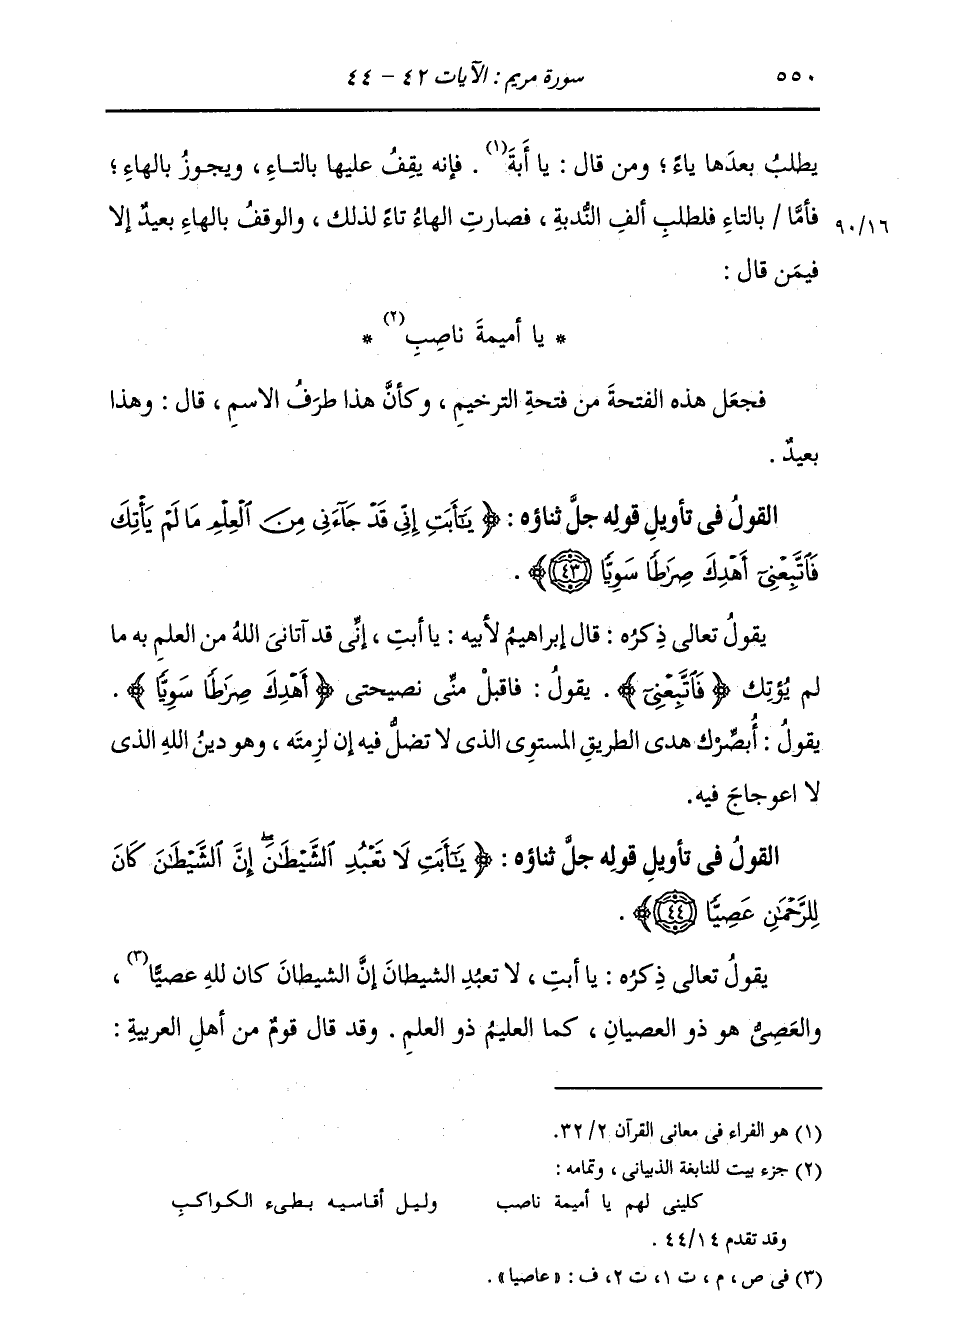 ٥٥٠ سورة مريم : الآيات ٤٢ - ٤٤
يطلبُ بعدَها ياءً ؛ ومن قال : يا أَبةَ(١) . فإنه يقِفُ عليها بالتاءِ ، ويجوزُ بالهاءِ ؛
فأمَّا / بالتاءِ فلطلبِ ألفِ النُّدبةِ ، فصارتِ الهاءُ تاءً لذلك ، والوقفُ بالهاءِ بعيدٌ إلا ٩٠/١٦
فيمَن قال :
* يا أميمةَ ناصِبِ(٢) *
فجعَل هذه الفتحةَ من فتحةِ الترخيمِ ، وكأنَّ هذا طرَفُ الاسمِ ، قال : وهذا
بعيدٌ .
القولُ فى تأويلِ قولِه جلَّ ثناؤه : ﴿ يَٰٓأَبَتِ إِنِّى قَدْ جَآءَنِى مِنَ ٱلْعِلْمِ مَا لَمْ يَأْتِكَ
فَٱتَّبِعْنِىٓ أَهْدِكَ صِرَٰطًا سَوِيًّا ٤٣ ﴾ .
يقولُ تعالى ذِكرُه : قال إبراهيمُ لأبيه : يا أبتِ ، إنِّى قد آتانىَ اللهُ من العلمِ به ما
لم يُؤتِك ﴿ فَٱتَّبِعْنِىٓ ﴾ . يقولُ : فاقبلْ منِّى نصيحتى ﴿ أَهْدِكَ صِرَٰطًا سَوِيًّا ﴾ .
يقولُ : أُبصِّرْك هدى الطريقِ المستوِى الذى لا تضلُّ فيه إن لزِمتَه ، وهو دينُ اللهِ الذى
لا اعوجاجَ فيه.
القولُ فى تأويلِ قولِه جلَّ ثناؤه : ﴿ يَٰٓأَبَتِ لَا تَعْبُدِ ٱلشَّيْطَٰنَ ۖ إِنَّ ٱلشَّيْطَٰنَ كَانَ
لِلرَّحْمَٰنِ عَصِيًّا ٤٤ ﴾ .
يقولُ تعالى ذِكرُه : يا أبتِ ، لا تعبُدِ الشيطانَ إنَّ الشيطانَ كان للهِ عصيًّا(٣) ،
والعَصِىُّ هو ذو العصيانِ ، كما العليمُ ذو العلمِ . وقد قال قومٌ من أهلِ العربيةِ :
(١) هو الفراء فى معانى القرآن ٣٢/٢.
(٢) جزء بيت للنابغة الذبيانى ، وتمامه :
كلينى لهم يا أميمة ناصب وليل أقاسيه بطىء الكواكب
وقد تقدم ٤٤/١٤ .
(٣) فى ص، م، ت ١، ت ٢، ف : «عاصيا» .